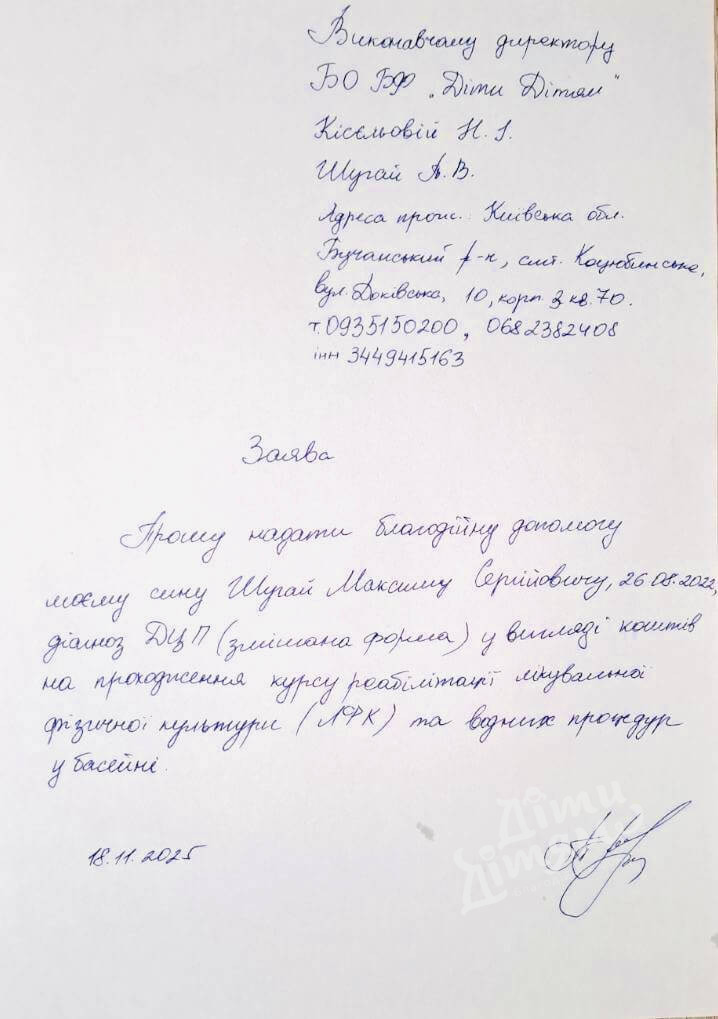 Виконавчому директору
БО БФ „Діти Дітям"
Кісєльовій Н. І.
Шугай А. В.
Адреса прож.: Київська обл.
Бучанський р-н, смт. Коцюбинське,
вул. Доківська, 10, корп. 3 кв. 70.
т. 0935150200, 0682382408
інн 3449415163
Заява
Прошу надати благодійну допомогу
моєму сину Шугай Максиму Сергійовичу, 26.08.2022,
діагноз ДЦП (змішана форма) у вигляді коштів
на проходження курсу реабілітації лікувальної
фізичної культури (ЛФК) та водних процедур
у басейні.
Діти
Дітям
18.11.2025